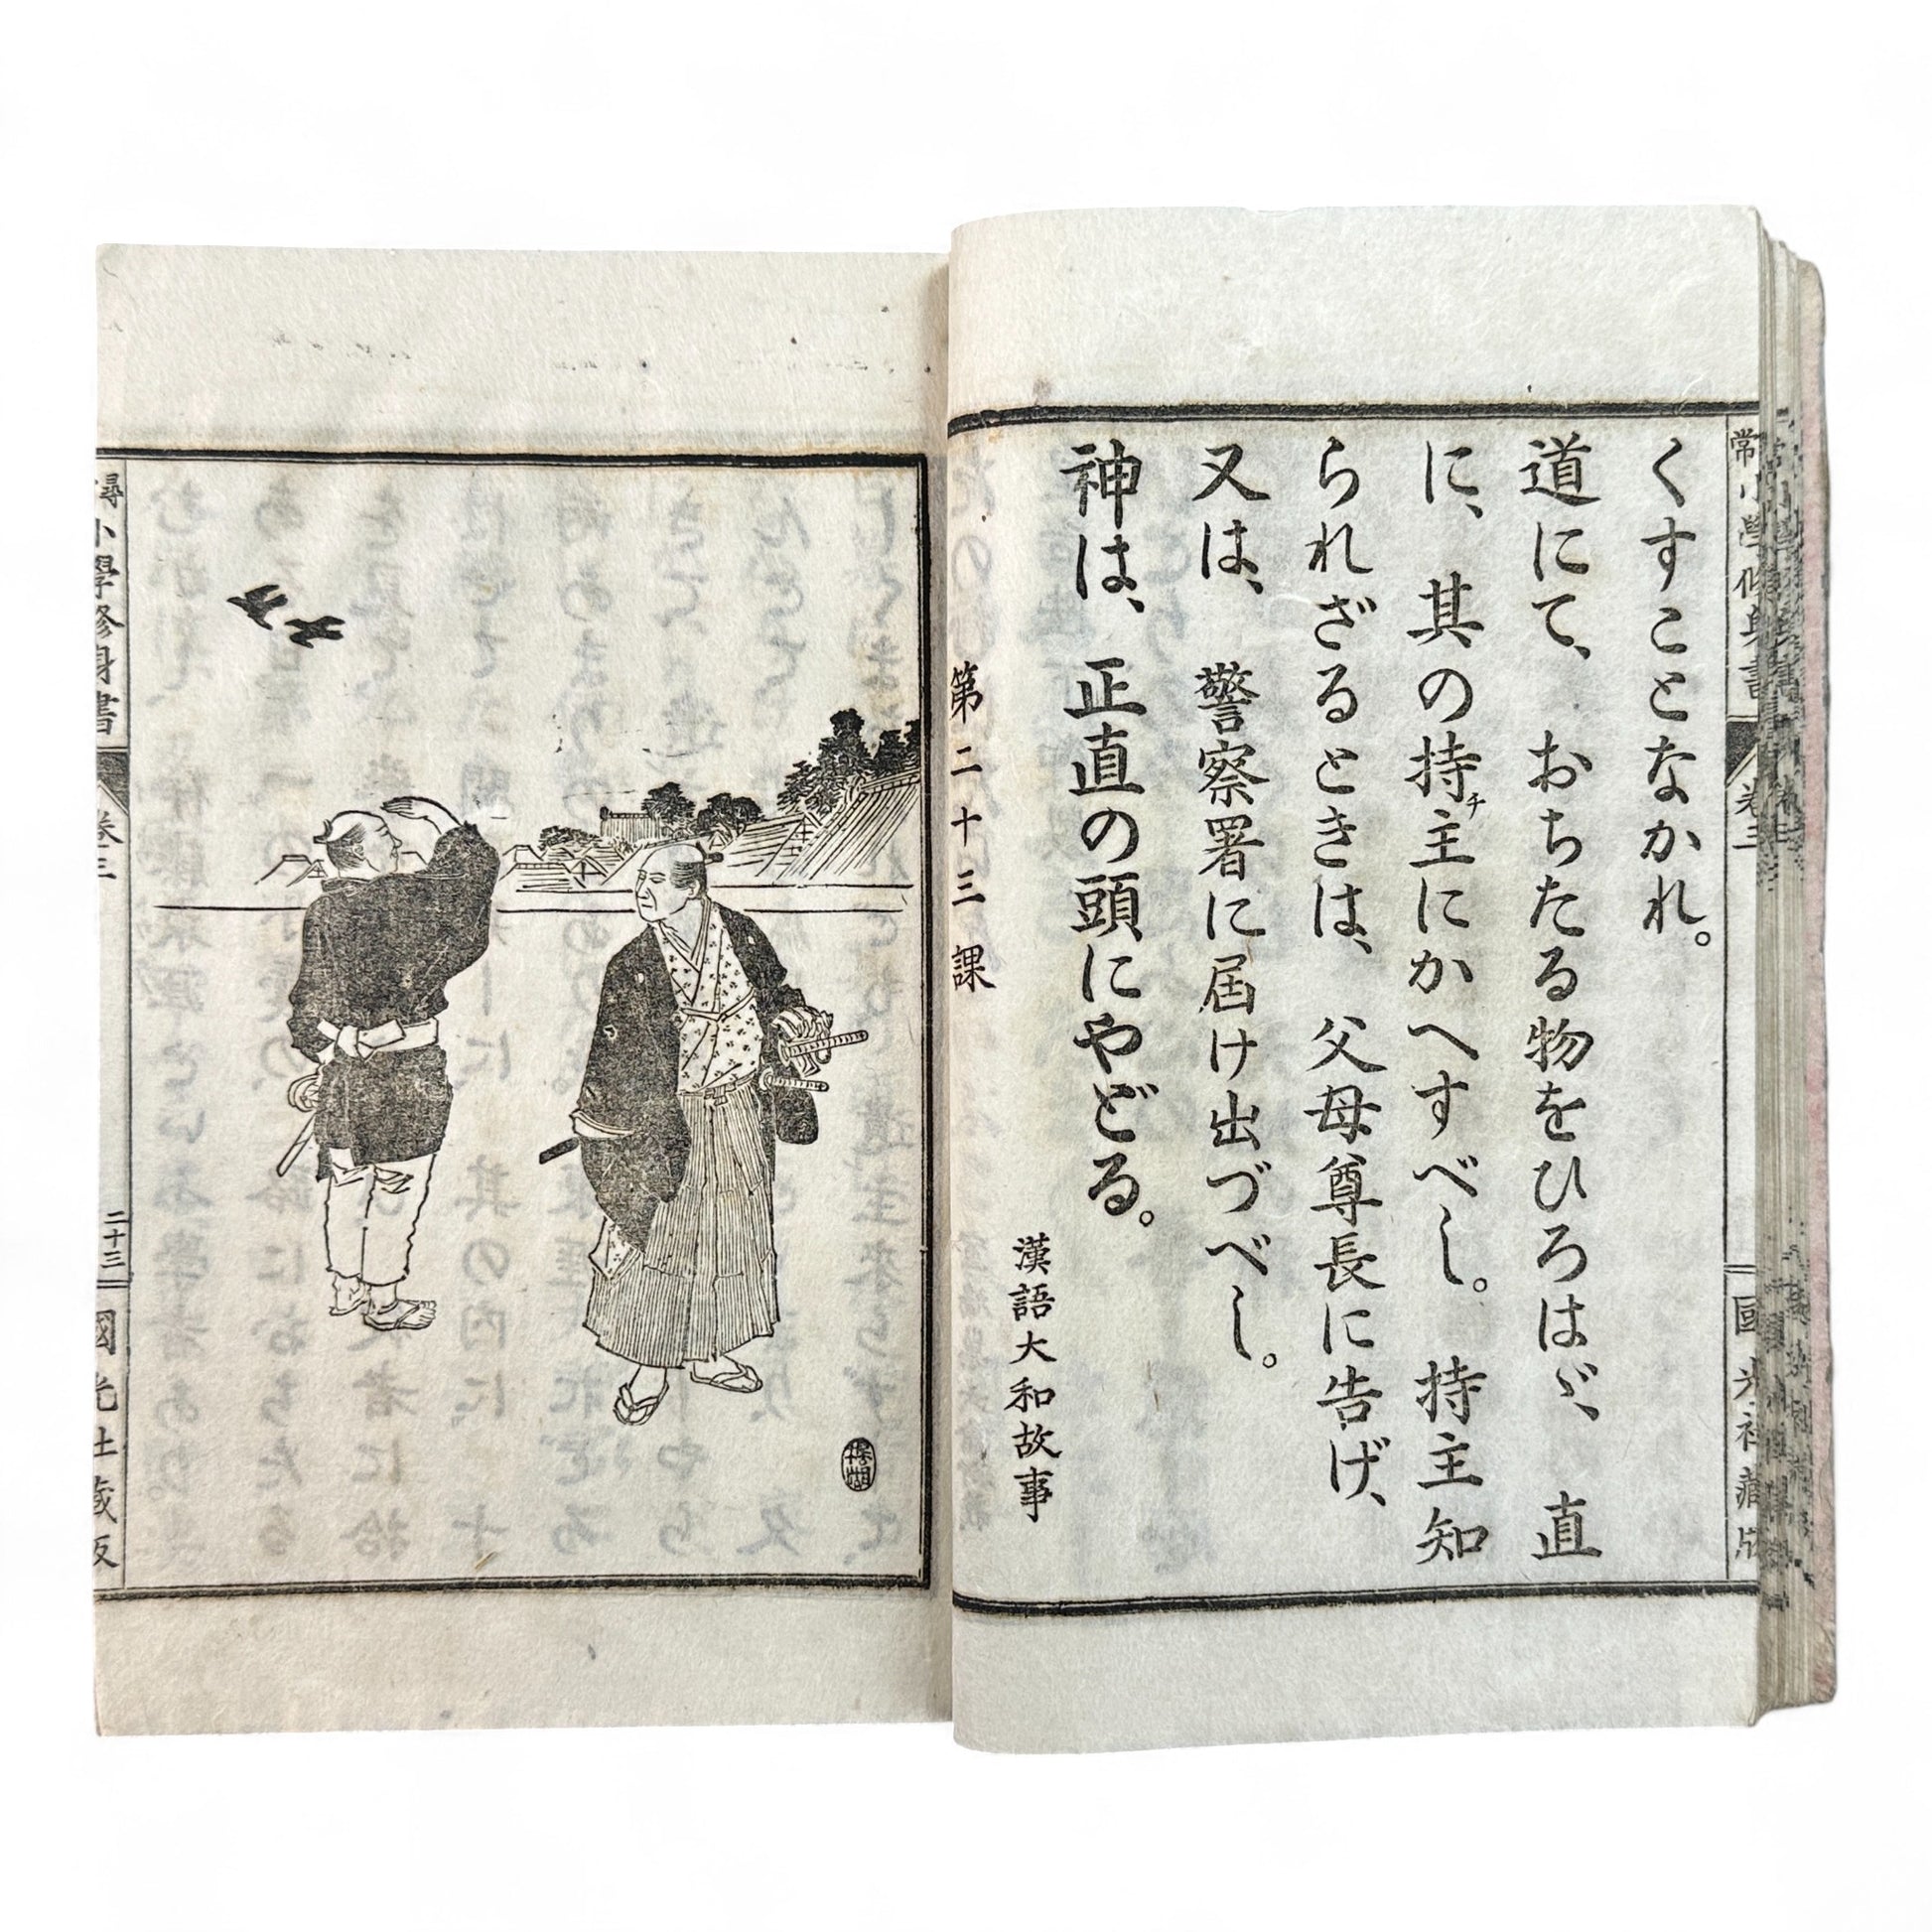 くすことなかれ。
道にて、おちたる物をひろはゞ、直
に、其の持チ主にかへすべし。持主知
られざるときは、父母尊長に告げ、
又は、警察署に屆け出づべし。
神は、正直の頭にやどる。
漢語大和故事
第二十三課
尋
小學修身書
卷三
二十三
國光社蔵版
常小學修身書
卷三
國光社藏版